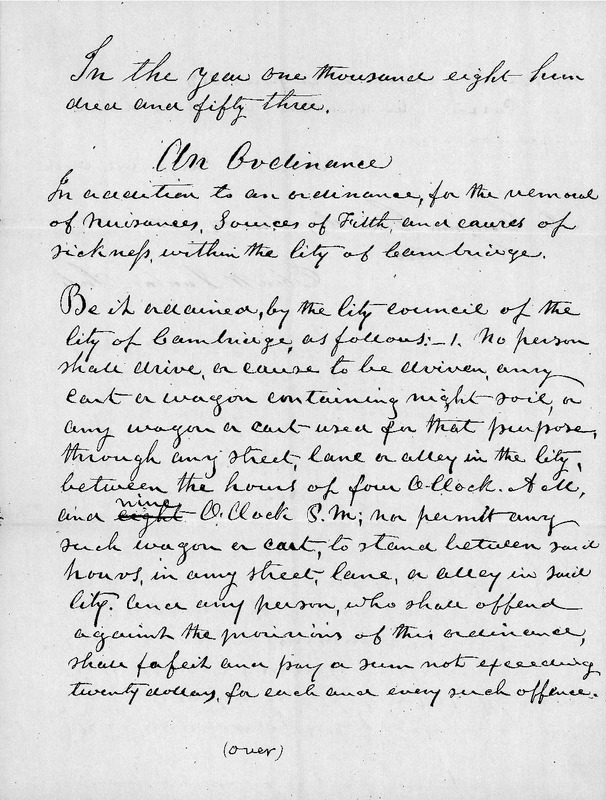 In the year one thousand eight hun
dred and fifty three.
An Ordinance
In addition to an ordinance, for the removal
of Nuisances, Sources of Filth, and causes of
sickness, within the City of Cambridge.
Be it ordained, by the City council of the
City of Cambridge, as follows:- 1. No person
shall drive, or cause to be driven, any
Cart or wagon containing night soil, or
any wagon or cart used for that purpose,
through any street, lane or alley in the City,
between the hours of four O'Clock. A.M,
nine
and eight O'Clock P.M; nor permit any
such wagon or cart, to stand between said
hours, in any street, lane, or alley in said
City. And any person, who shall offend
against the provisions of this ordinance,
shall forfeit and pay a sum not exceeding
twenty dollars, for each and every such offence.
(over)